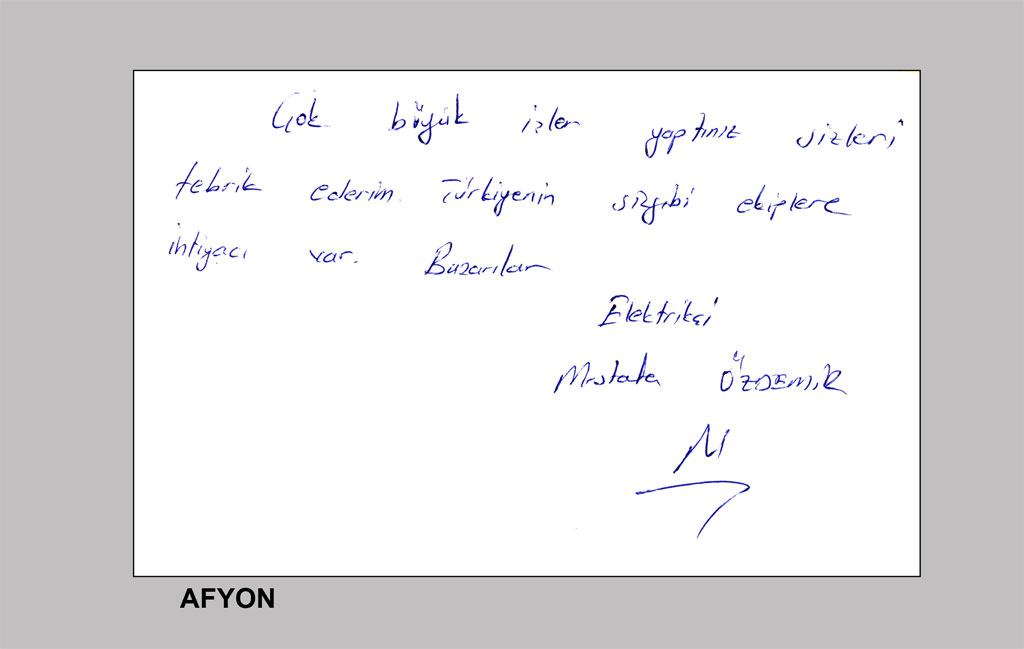 Çok büyük işler yaptınız sizleri
tebrik ederim. Türkiyenin sizgibi ekiplere
ihtiyacı var. Bazarılar
Elektrikçi
Mustafa ÖZDEMİR
AFYON